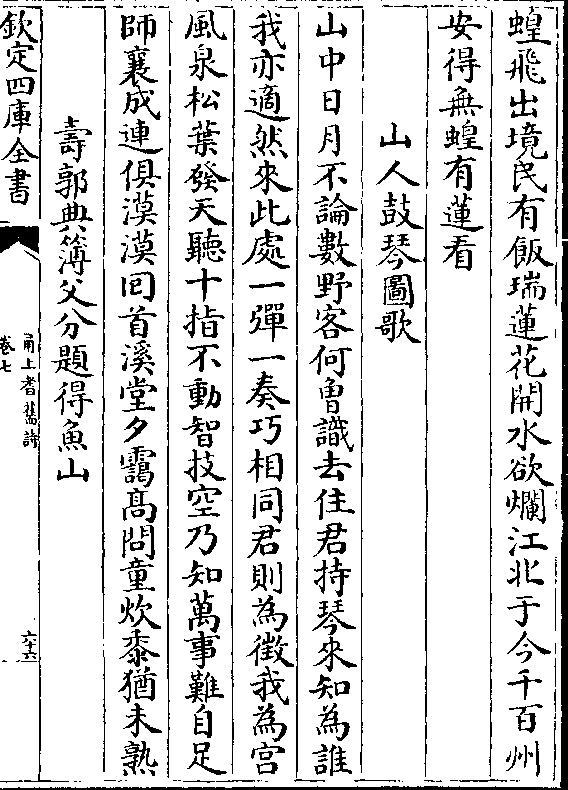 蝗飛出境民有飯瑞蓮花開水欲爛江北于今千百州
安得無蝗有蓮看
山人鼓琴圖歌
山中日月不論數野客何曾識去住君持琴來知為誰
我亦適然來此處一彈一奏巧相同君則為徴我為宫
風泉松葉發天聽十指不動智技空乃知萬事難自足
師襄成連俱漠漠囘首溪堂夕靄髙問童炊黍猶未熟
壽郭典簿父分題得魚山
欽定四庫全書
甬上耆舊詩
卷七
六十六